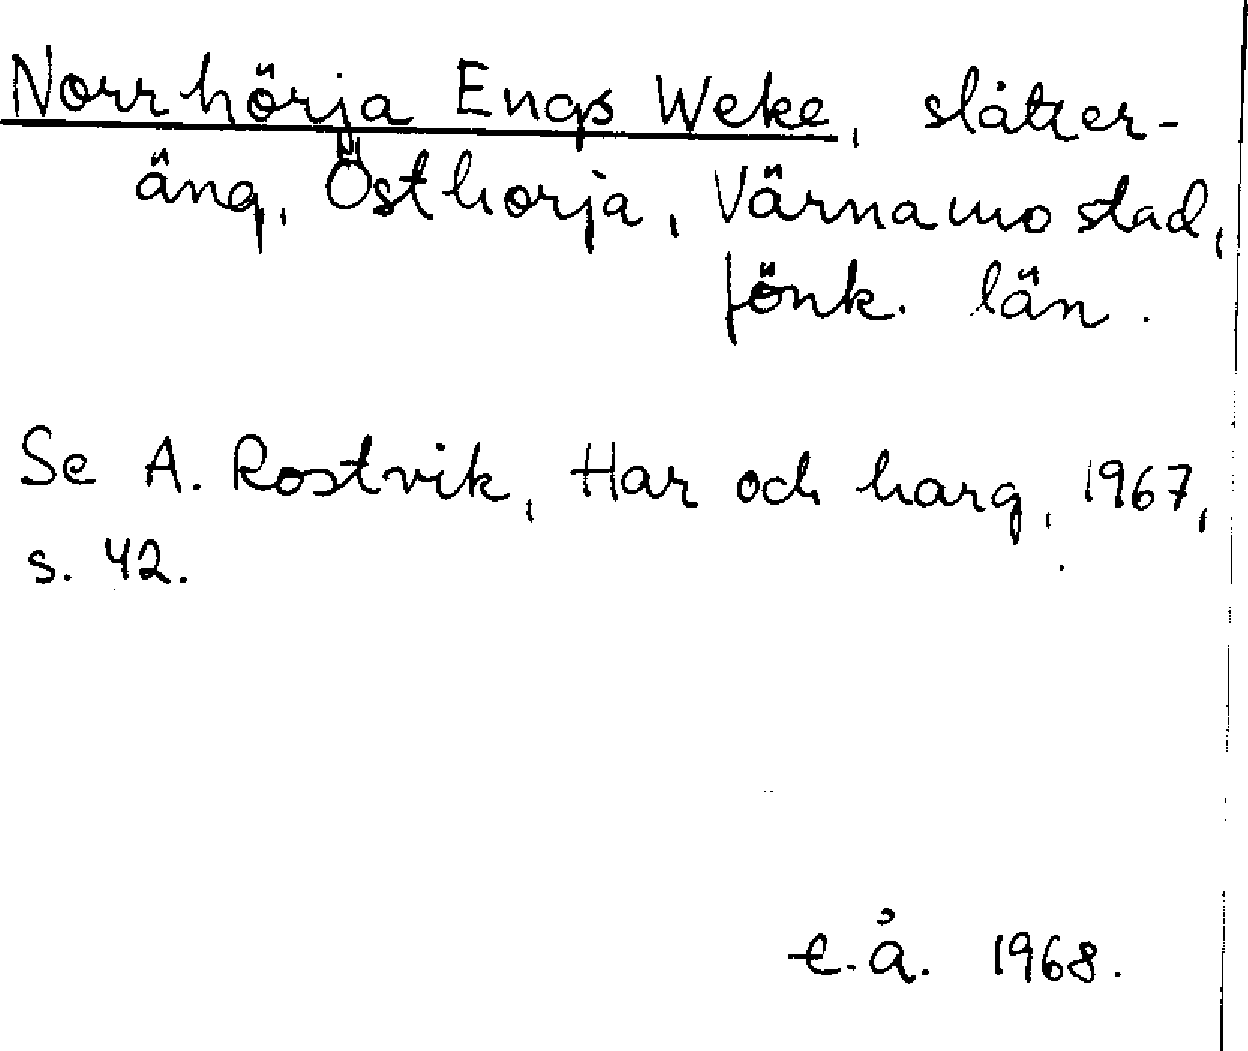 Norrhörja Engs Weke, slåtter-
äng, Östhorja, Värnamo stad,
Jönk. län.
Se A. Rostvik, Har och harg, 1967,
s. 42.
E.Å. 1968.